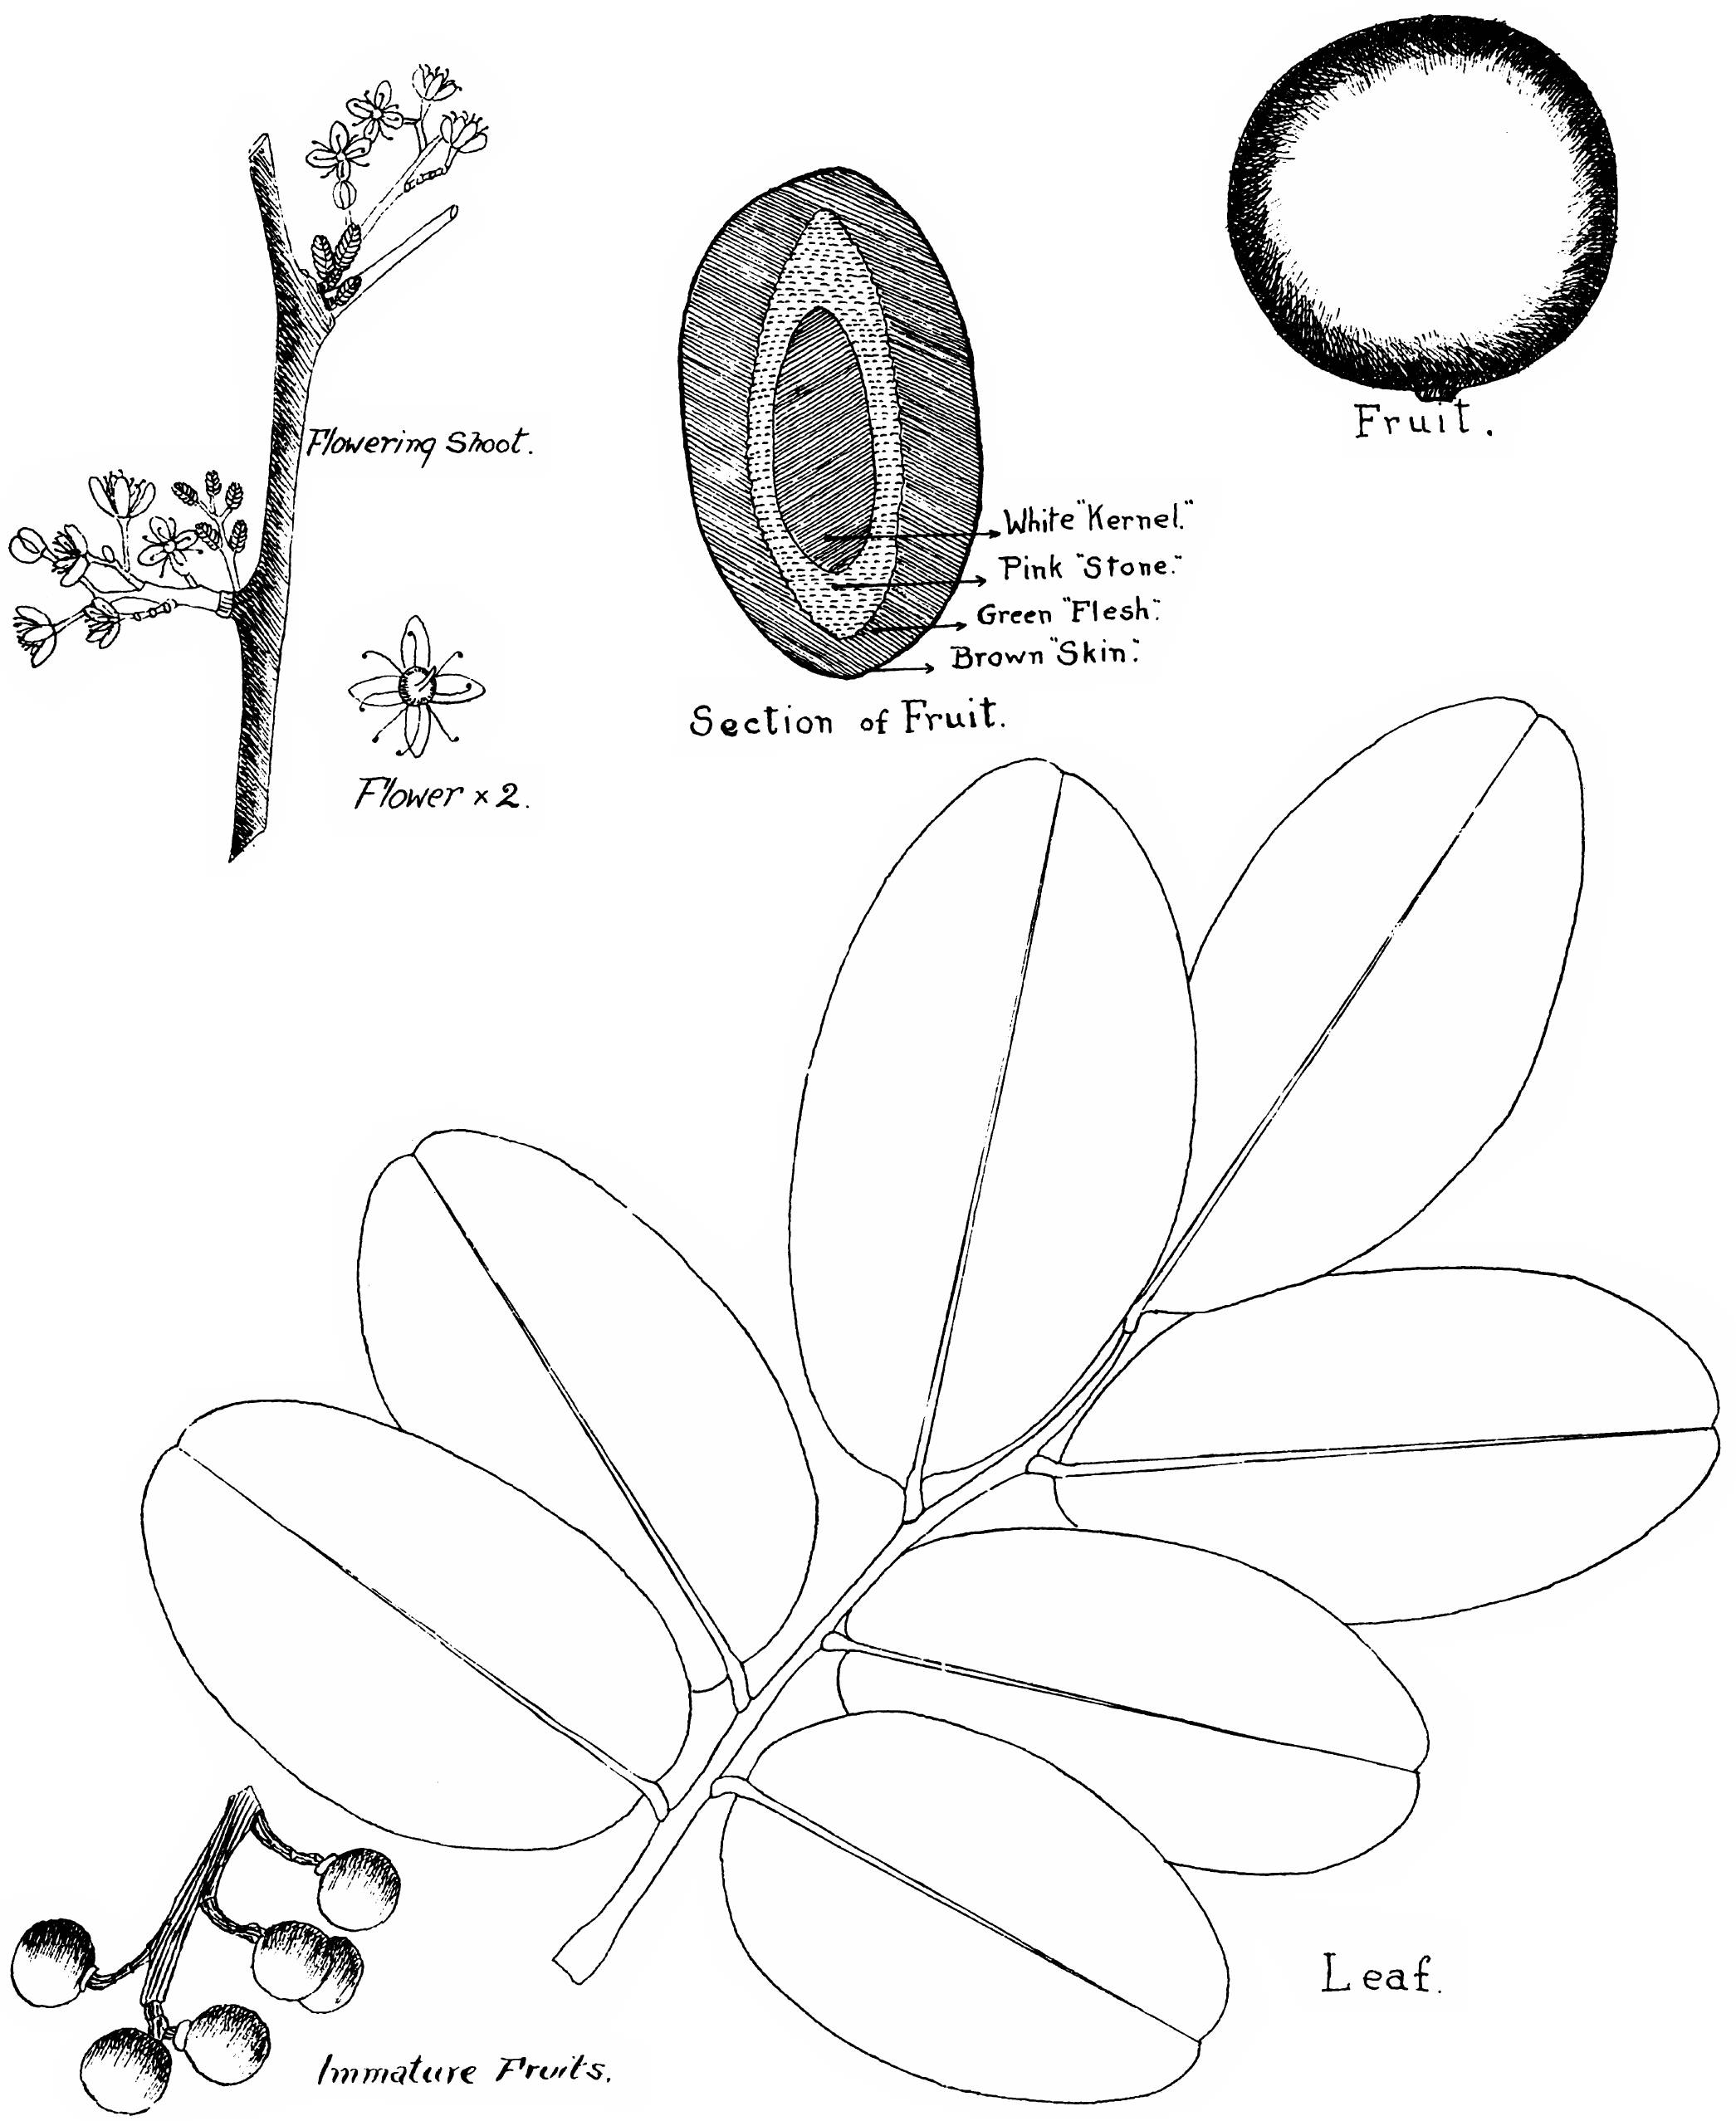 Fruit.
Flowering Shoot.
White "Kernel."
Pink "Stone."
Green "Flesh".
Brown "Skin".
Section of Fruit.
Flower x 2.
Leaf.
Immature Fruits.